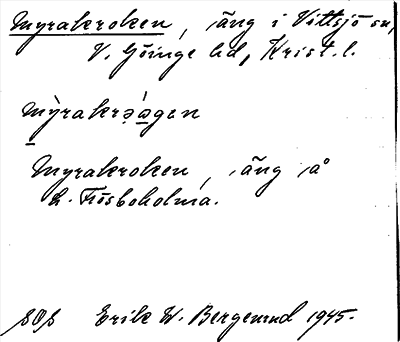 Myrakroken, äng i Vittsjö sn,
V. Göinge hd, Krist. l.
mỳrakrə́agen
Myrakroken, äng å
L. Frösboholma.
SOS Erik W. Bergerud 1945.